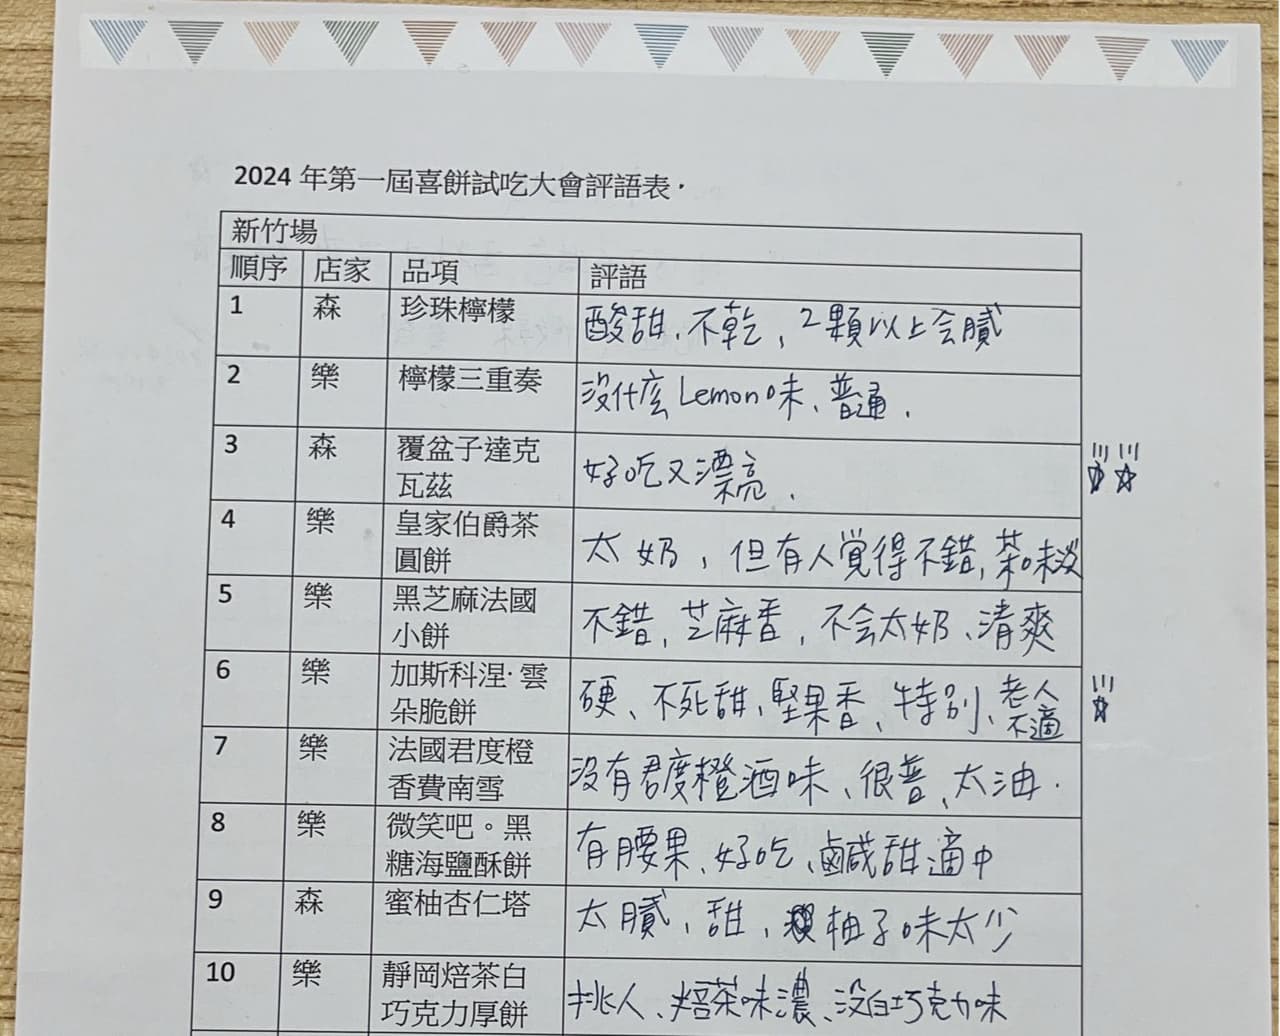 2024 年第一屆喜餅試吃大會評語表.
新竹場
順序 店家 品項 評語
1 森 珍珠檸檬 酸甜、不乾,2顆以上会膩
2 樂 檸檬三重奏 沒什麼Lemon味、普通.
3 森 覆盆子達克 好吃又漂亮. ☆☆
瓦茲
4 樂 皇家伯爵茶 太奶,但有人覺得不錯,茶味淡
圓餅
5 樂 黑芝麻法國 不錯,芝麻香,不会太奶、清爽
小餅
6 樂 加斯科涅·雲 硬、不死甜、堅果香、特別、老人 ☆
朵脆餅 不適
7 樂 法國君度橙 沒有君度橙酒味、很普、太油.
香費南雪
8 樂 微笑吧。黑 有腰果、好吃、鹹甜適中
糖海鹽酥餅
9 森 蜜柚杏仁塔 太膩,甜,柚子味太少
10 樂 靜岡焙茶白 挑人、焙茶味濃、沒白巧克力味
巧克力厚餅